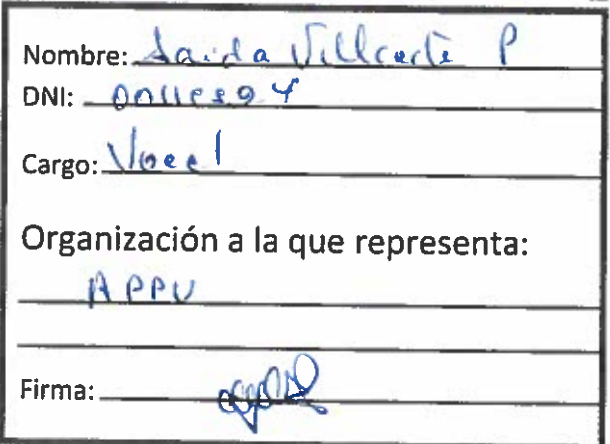 Nombre: Saida Villcarte P
DNI:
Cargo: Vocal
Organización a la que representa:
APPU
Firma: